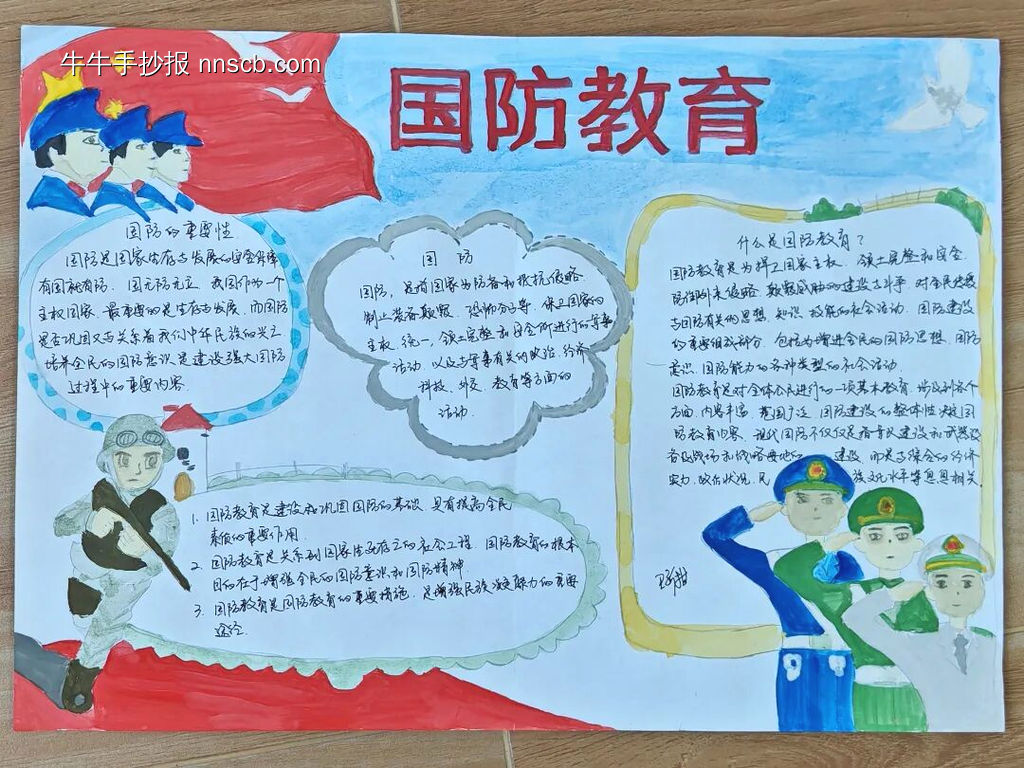 牛牛手抄报 nnscb.com
国防教育
国防的重要性
国防是国家生存与发展的安全保障
有国就有防，国无防无立，我国作为一个
主权国家，最重要的是生存与发展，而国防
是否巩固又与关系着我们中华民族的兴亡
培养全民的国防意识是建设强大国防
过程中的重要内容
国 防
国防，是指国家为防备和抵抗侵略
制止装备颠覆、恐怖分子等，保卫国家的
主权，统一，领土完整和安全所进行的军事
活动，以及与军事有关的政治，经济
科技、外交、教育等方面的
活动.
什么是国防教育？
国防教育是为捍卫国家主权、领土完整和安全
防御外来侵略、颠覆威胁的建设与斗争，对全民传授
与国防有关的思想、知识、技能的社会活动，国防建设
的重要组成部分，包括为增进全民的国防思想、国防
意识、国防能力的各种类型的社会活动
国防教育是对全体公民进行的一项基本教育，涉及到各个
方面，内容丰富，范围广泛，国防建设的整体性决定国
防教育内容，现代国防不仅仅是指常规建设和武器设
备及战场和战略要地的 建设，而是与综合的经济
实力，政治状况，民 族文化水平等息息相关.
1. 国防教育是建设和巩固国防的基础，是有提高全民
素质的重要作用
2. 国防教育是关系到国家生死存亡的社会工程，国防教育的根本
目的在于增强全民的国防意识和国防精神
3. 国防教育是国防教育的重要措施，是增强民族凝聚力的重要
途径.